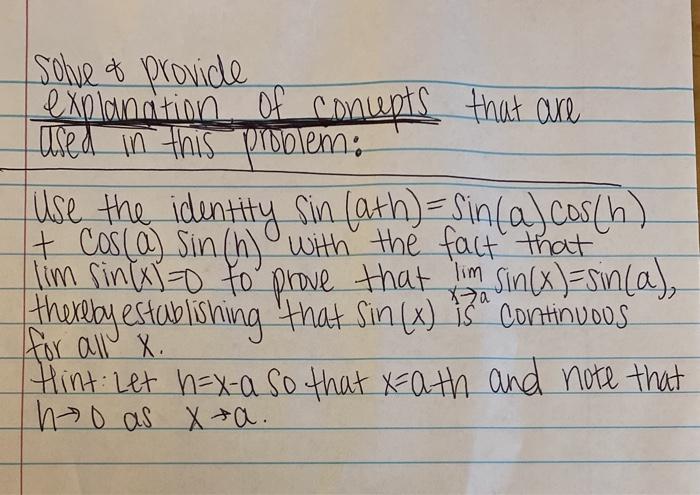 Solve & provide
explanation of concepts that are
used in this problem:
Use the identity sin(a+h)=sin(a)cos(h)
+ cos(a) sin(h) with the fact that
lim sin(x)=0 to prove that lim x→a sin(x)=sin(a),
thereby establishing that sin(x) is continuous
for all x.
Hint: Let h=x-a so that x=a+h and note that
h→0 as x→a.